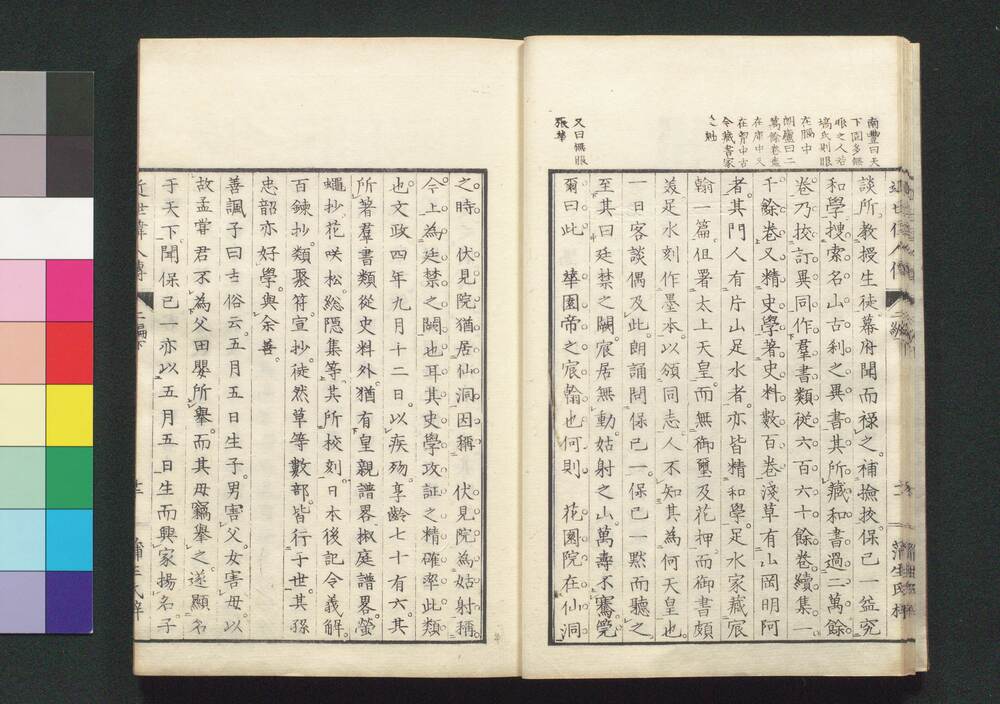 南豐曰天
下固多無
眼之人若
塙氏則眼
在腦中
朗廬曰二
萬餘卷盡
在庫中又
在胷中古
今藏書家
之魁
談所教授生徒幕府聞而禄之補撿挍保己一益究
和學捜索名山古刹之異書其所藏和書過二萬餘
卷乃挍訂異同作羣書類從六百六十餘卷續集一
千餘卷又精史學著史料數百卷淺草有山岡明阿
者其門人有片山足水者亦皆精和學足水家藏宸
翰一篇但署太上天皇而無御璽及花押而御書頗
羙足水刻作墨本以頒同志人不知其為何天皇也
一日客談偶及此朗誦問保己一保己一默而聽之
至其曰廷禁之闕宸居無動姑射之山萬壽不騫莞
爾曰此　華園帝之宸翰也何則　花園院在仙洞
又曰無眼
張華
之時　伏見院猶居仙洞因稱　伏見院為姑射稱
今上為廷禁之闕也耳其史學攷証之精確率此類
也文政四年九月十二日以疾殇享齡七十有六其
所著羣書類從史料外猶有皇親譜畧椒庭譜畧螢
蠅抄花咲松総隠集等其所校刻日本後記令義解
百鍊抄類聚符宣抄徒然草等數部皆行于世其孫
忠韶亦好學與余善
善諷子曰古俗云五月五日生子男害父女害母以
故孟甞君不為父田嬰所舉而其母竊舉之遂顯名
于天下聞保己一亦以五月五日生而興家揚名子
近世偉人傳
二編下
蒲生氏梓